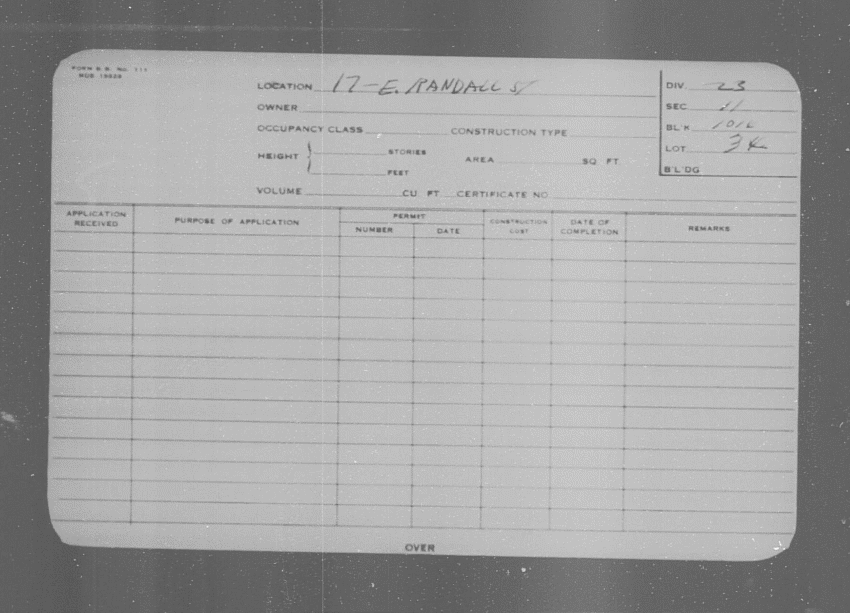 FORM B.B. No. 111
LOCATION 17-E. RANDALL St
DIV. 23
OWNER
SEC
OCCUPANCY CLASS CONSTRUCTION TYPE
BL'K
HEIGHT } STORIES AREA SQ FT
LOT 34
FEET
B'L'DG
VOLUME CU FT CERTIFICATE NO
APPLICATION RECEIVED PURPOSE OF APPLICATION PERMIT CONSTRUCTION COST DATE OF COMPLETION REMARKS
NUMBER DATE
OVER